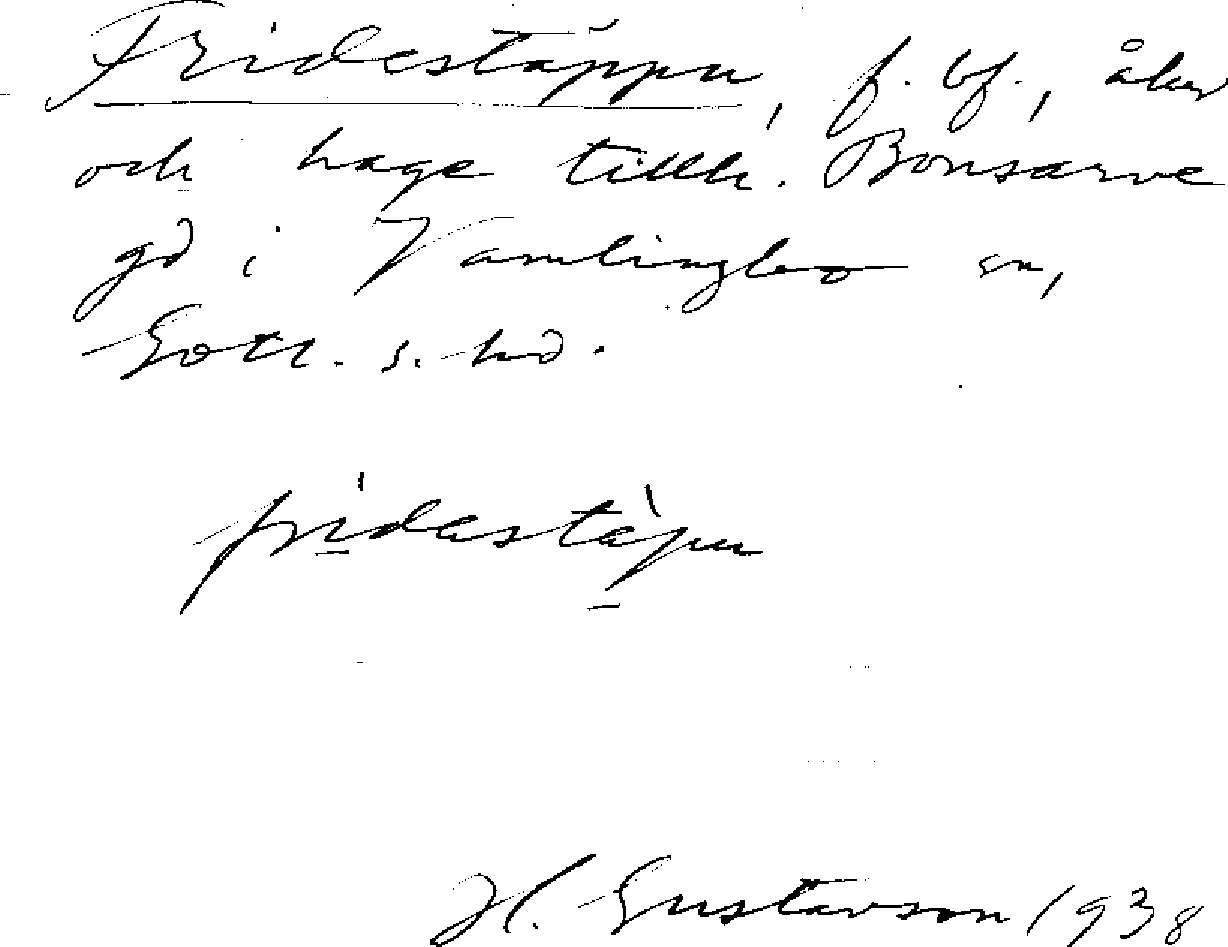 Fridestäppu, f. bf., åker
och hage tillh. Bonsarve
gd i Vamlingbo sn,
Gotl. s. hd.
fridastäpu
H. Gustavson 1938